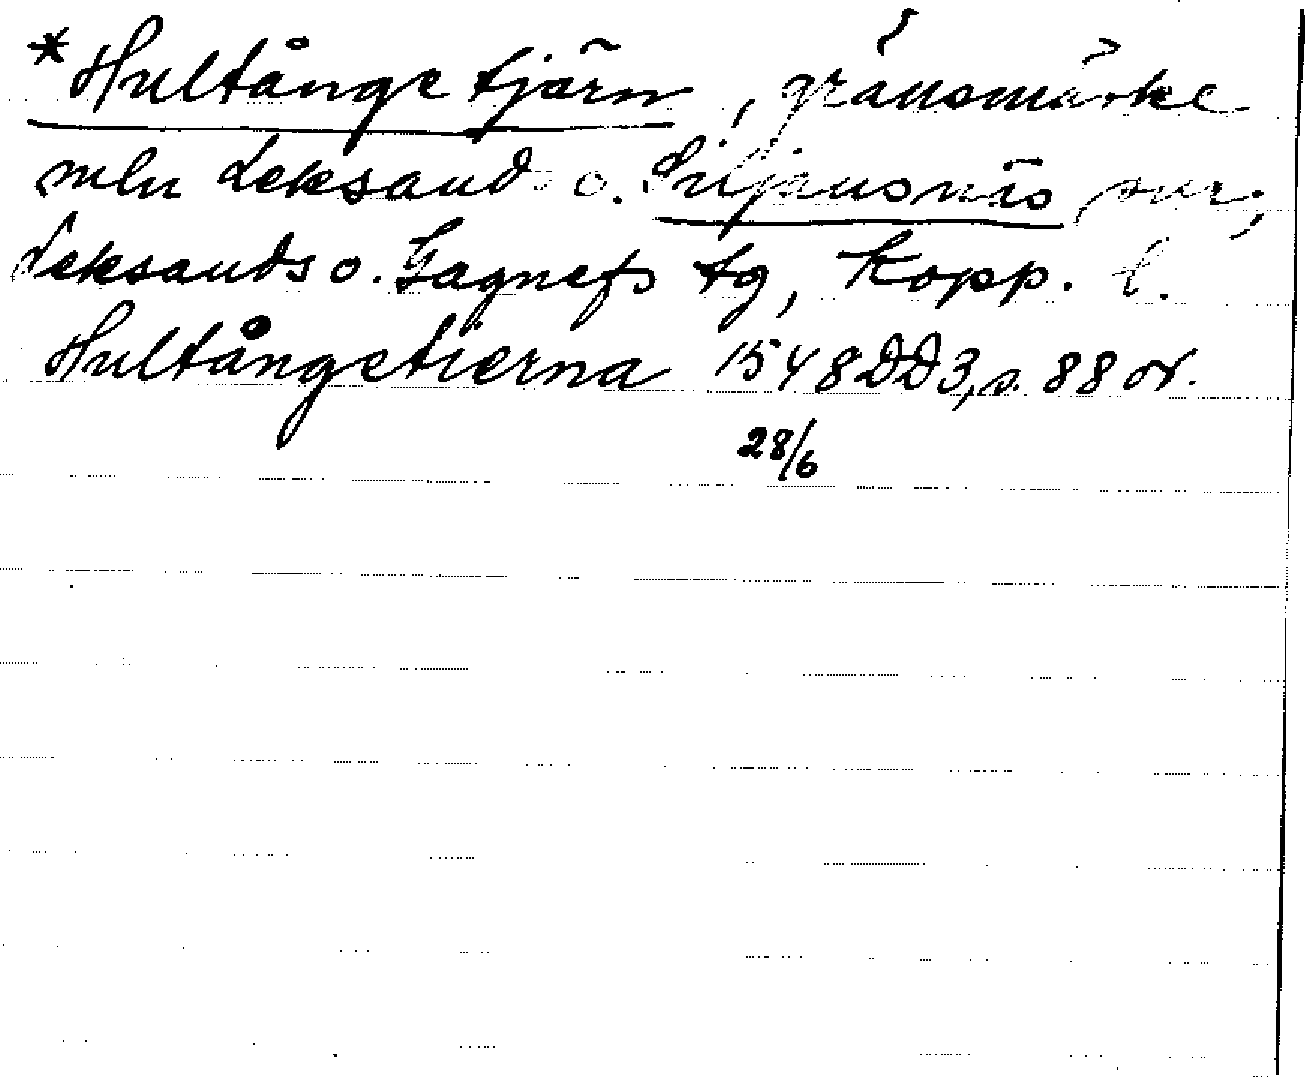 *Hultånge tjärn, gränsmärke
mln Leksands o. Siljansnäs snr;
Leksands o. Gagnefs tg, Kopp. l.
Hultångetierna 1548 DD3, s. 88 or.
28/6